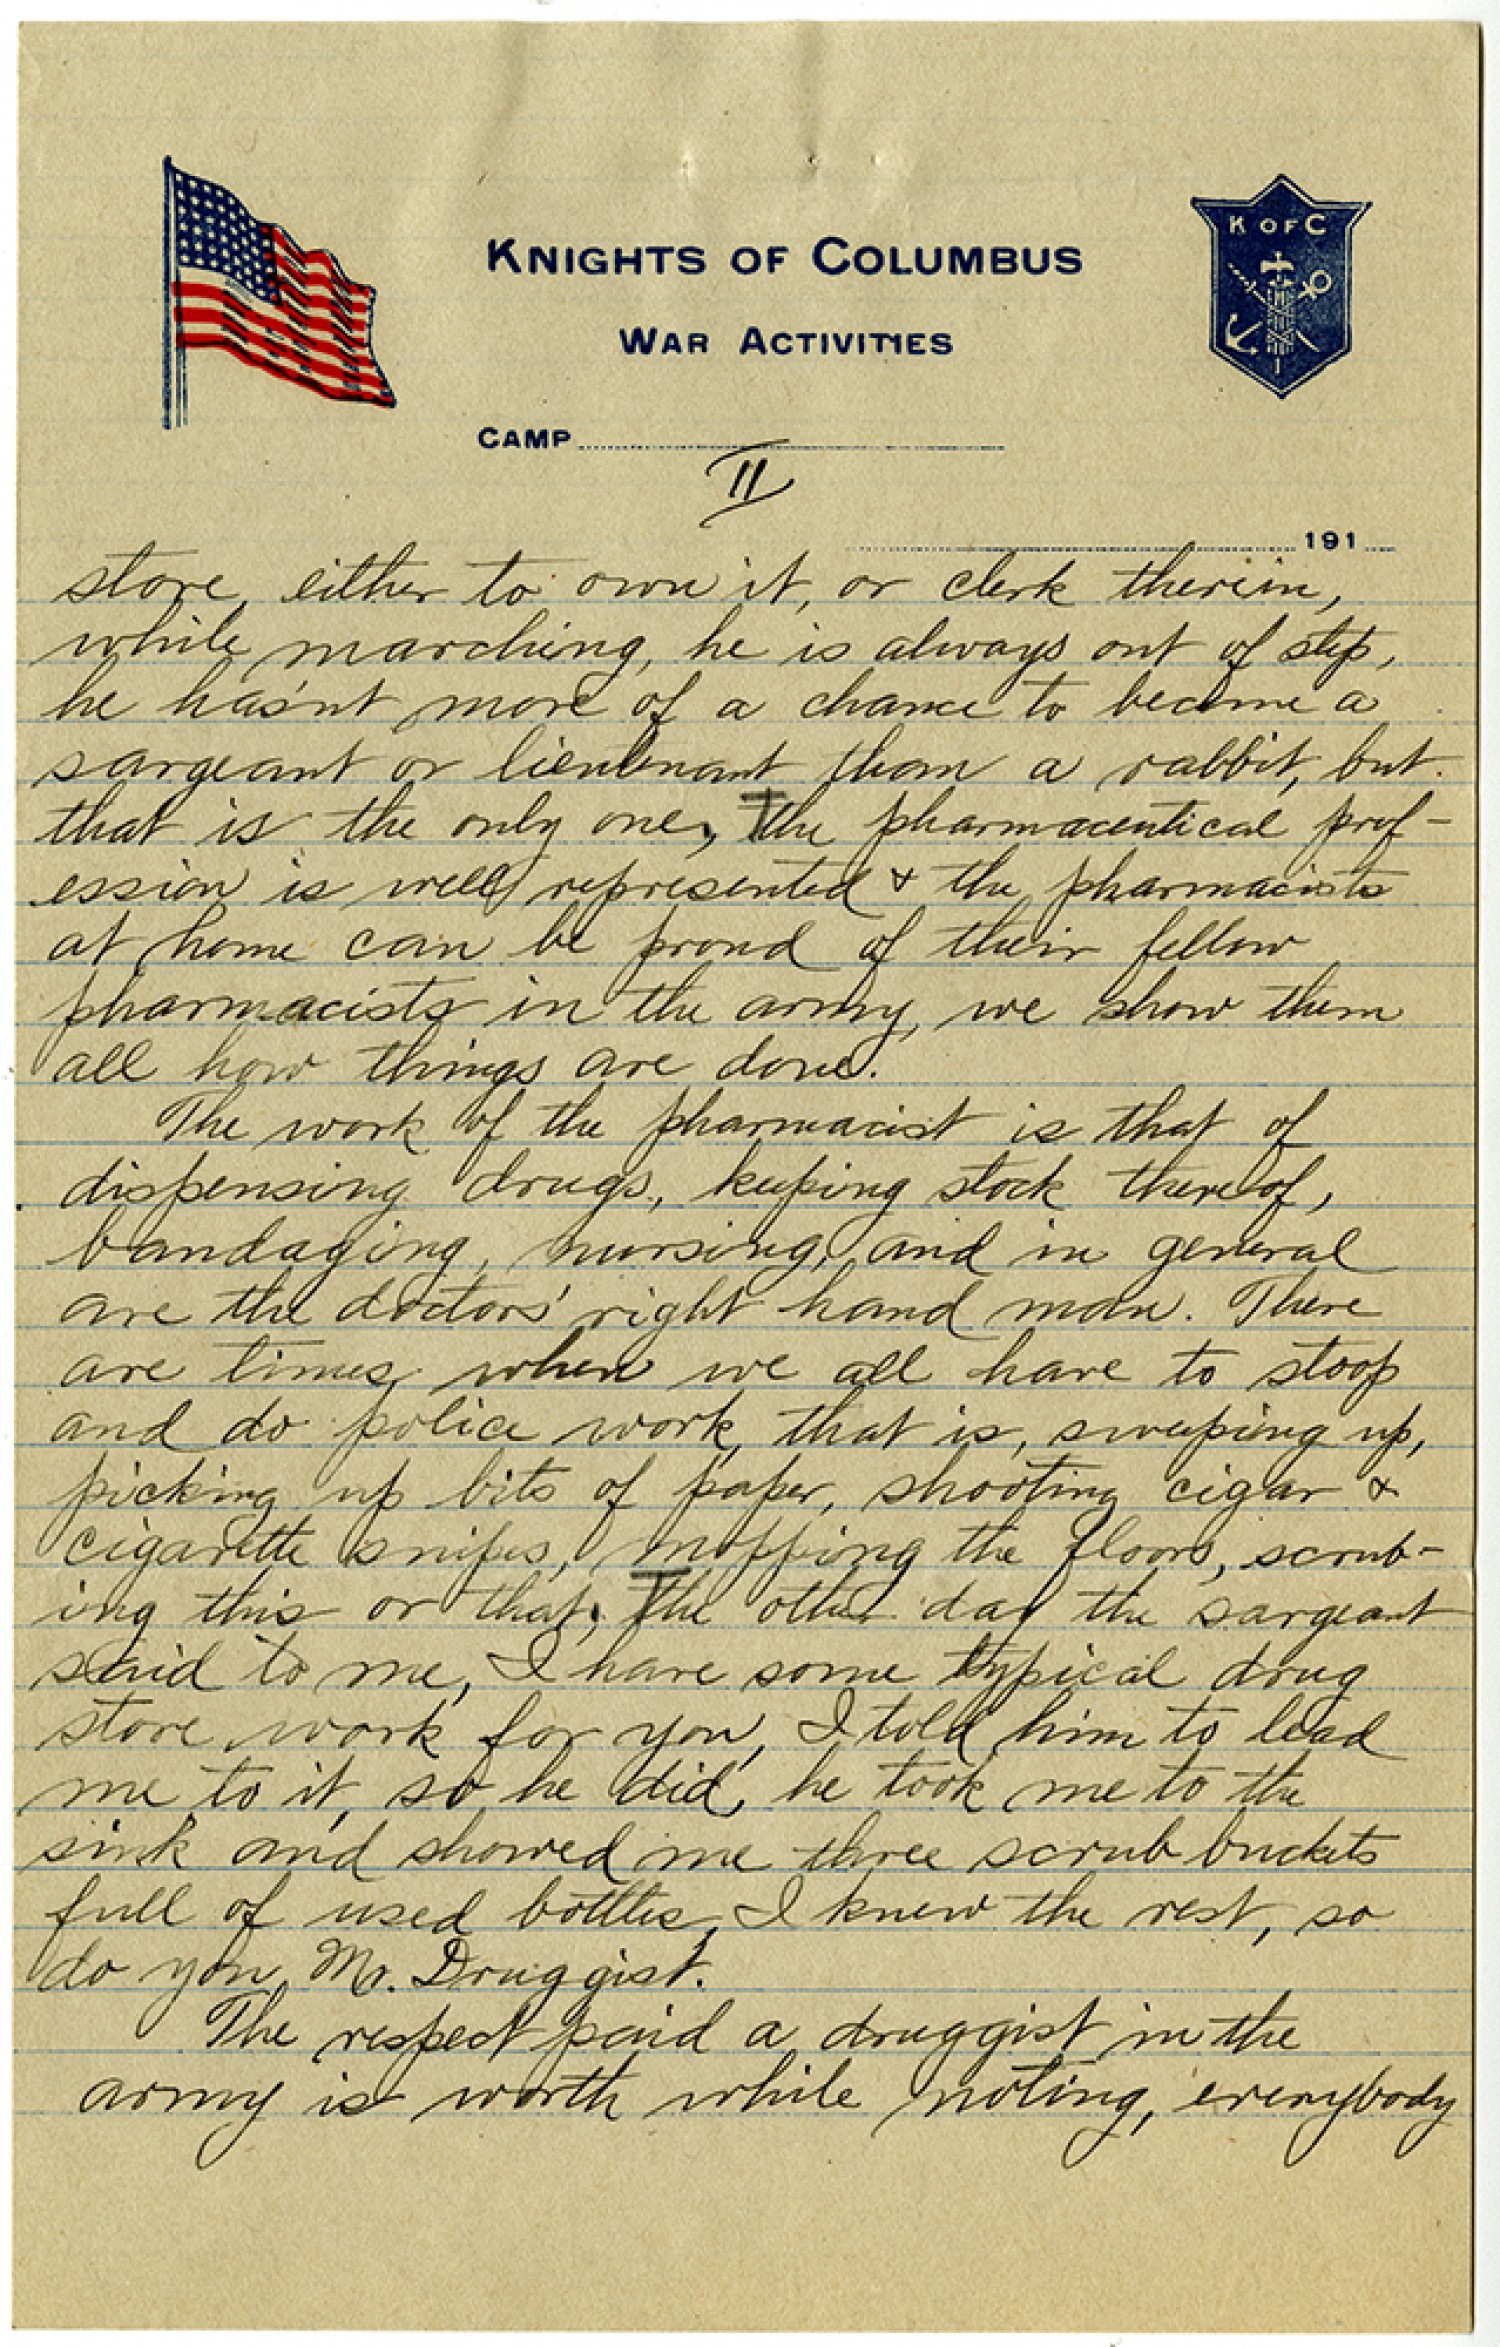 KNIGHTS OF COLUMBUS
K OF C
WAR ACTIVITIES
CAMP
II
191
store, either to own it, or clerk therein,
while marching, he is always out of step,
he hasn't more of a chance to become a
sargeant or lieutenant than a rabbit, but
that is the only one, The pharmaceutical prof-
ession is well represented & the pharmacists
at home can be proud of their fellow
pharmacists in the army, we show them
all how things are done.
The work of the pharmacist is that of
dispensing drugs, keeping stock thereof,
bandaging, nursing, and in general
are the doctors' right hand man. There
are times when we all have to stoop
and do police work, that is, sweeping up,
picking up bits of paper, shooting cigar &
cigarette snipes, mopping the floors, scrub-
ing this or that. The other day the sargeant
said to me, I have some typical drug
store work for you, I told him to lead
me to it, so he did, he took me to the
sink and showed me three scrub buckets
full of used bottles, I knew the rest, so
do you, Mr. Druggist.
The respect paid a druggist in the
army is worth while noting, everybody